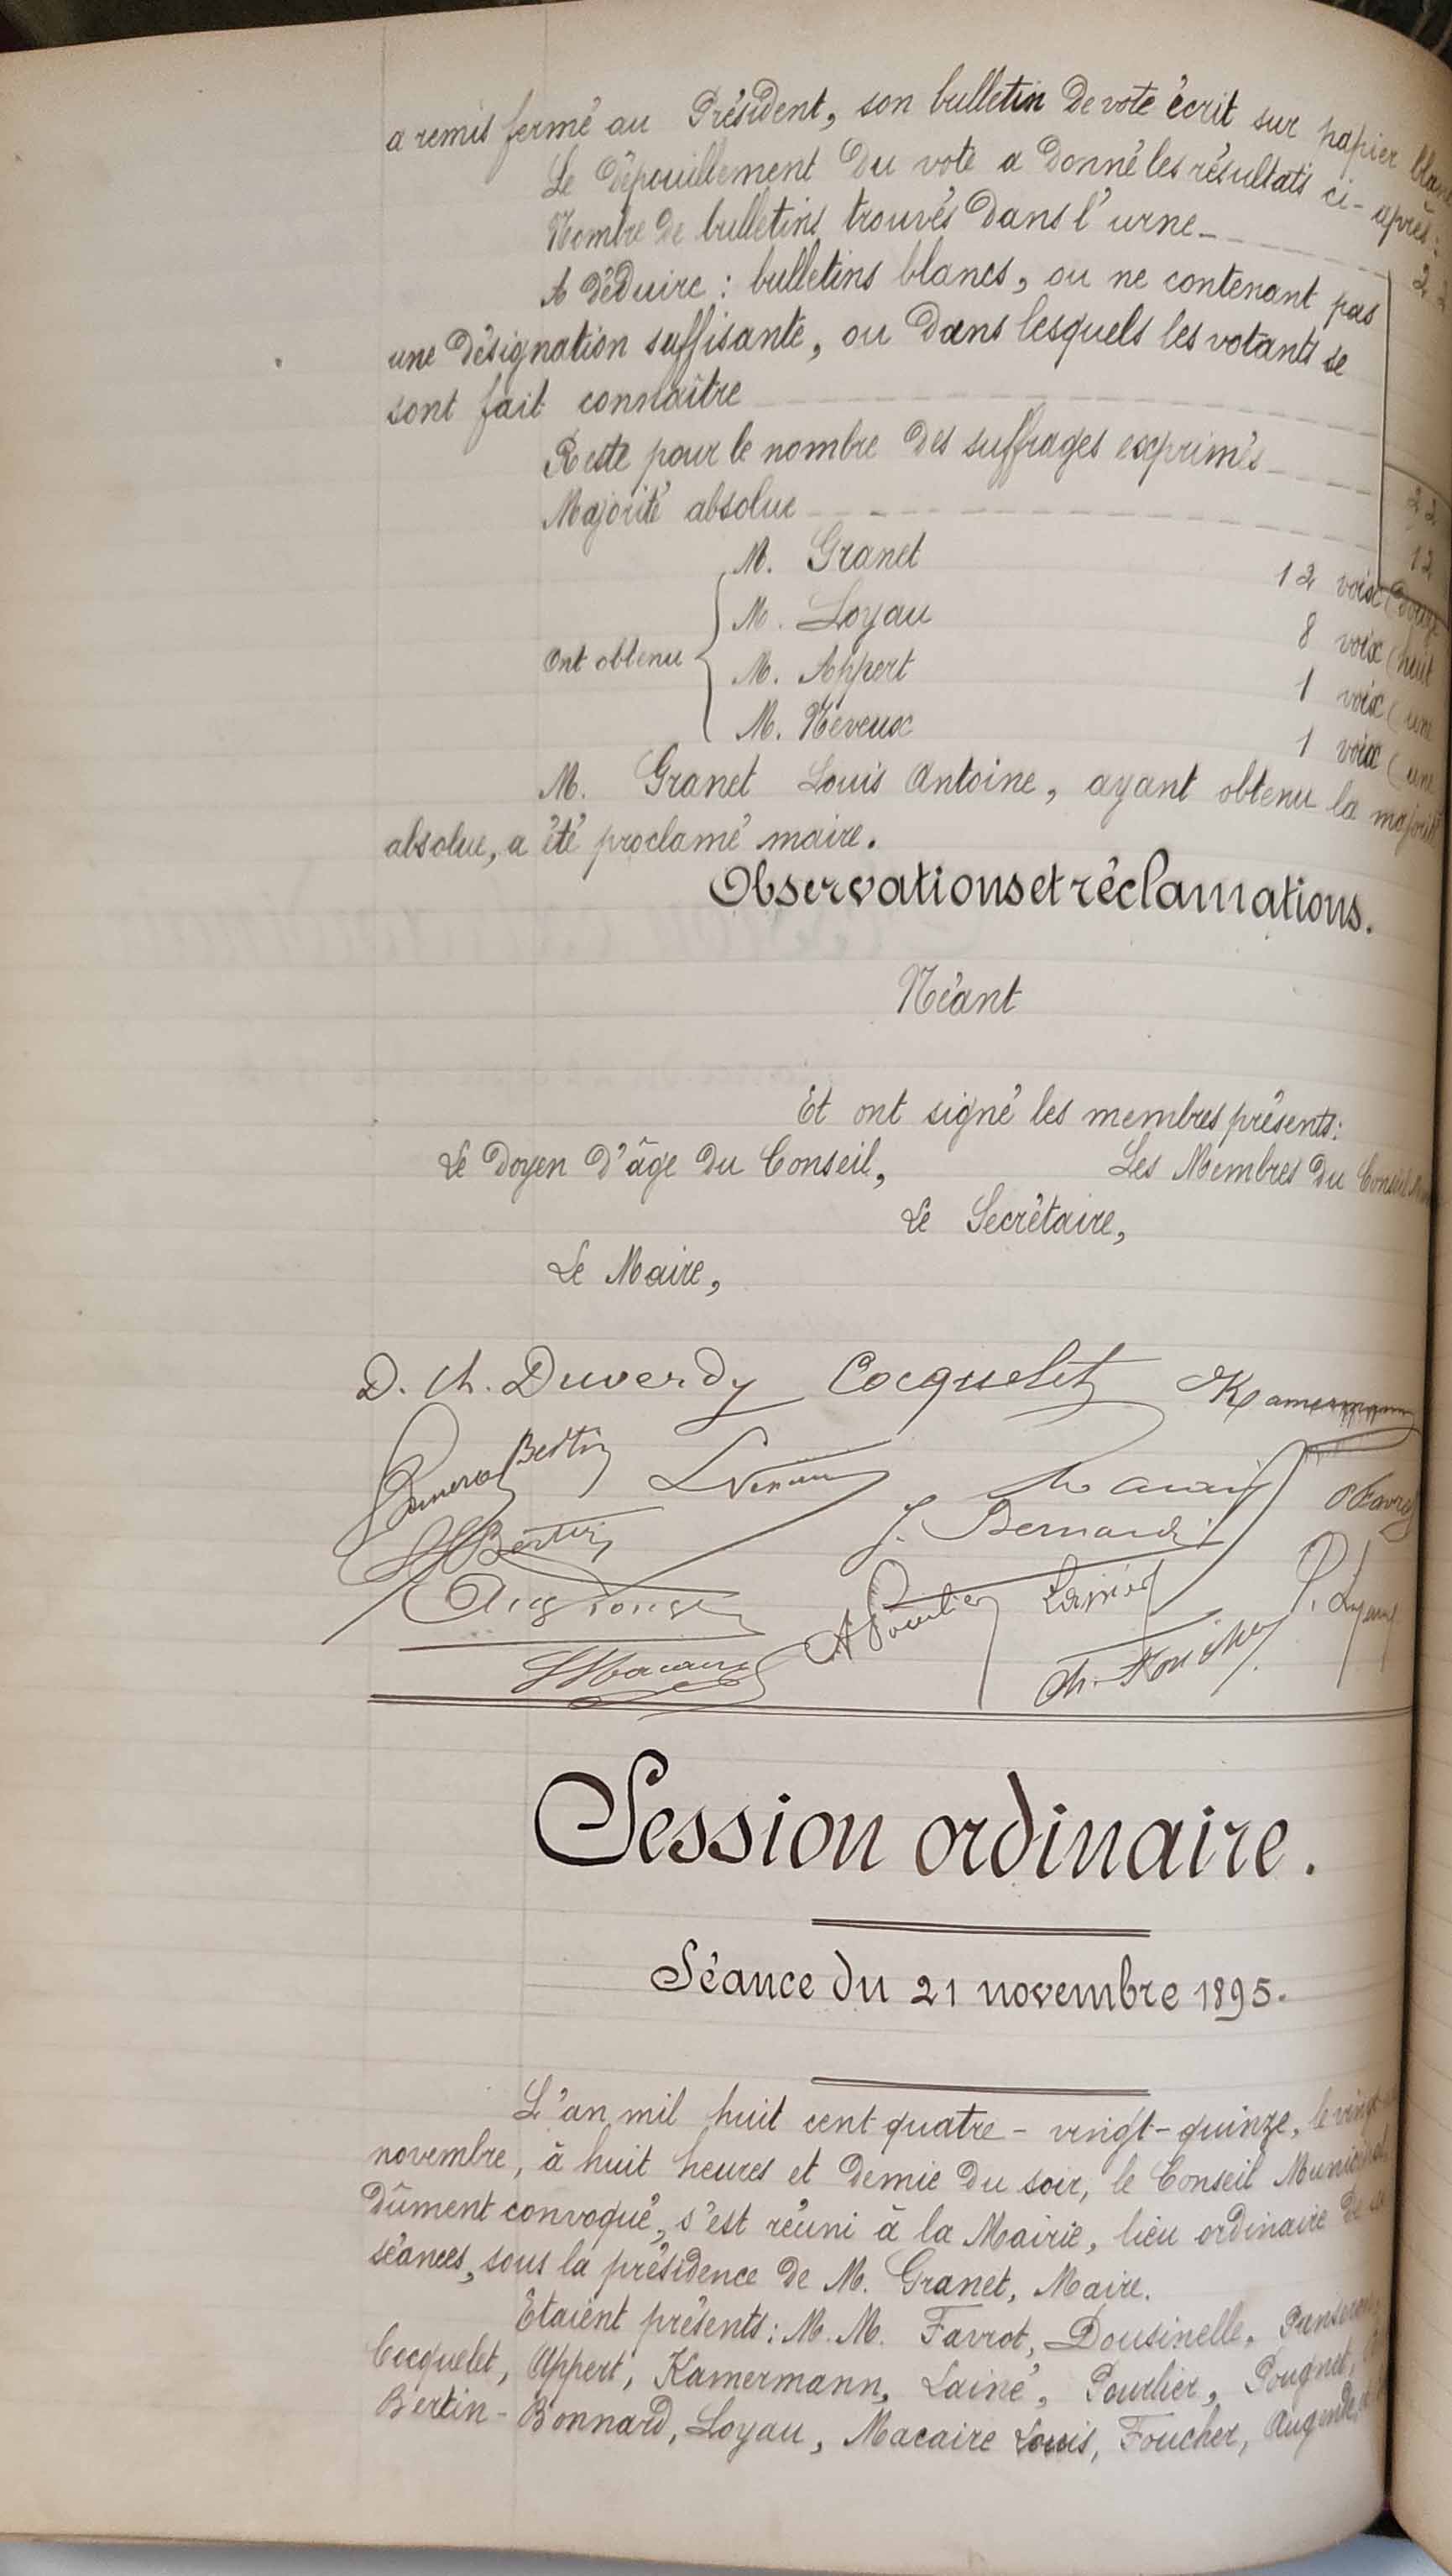 a remis fermé au Président, son bulletin de vote écrit sur papier blanc
Le dépouillement du vote a donné les résultats ci-après :
Nombre de bulletins trouvés dans l'urne
A déduire : bulletins blancs, ou ne contenant pas
une désignation suffisante, ou dans lesquels les votants se
sont fait connaître
Reste pour le nombre des suffrages exprimés 22
Majorité absolue 12
M. Granet 12 voix (douze
M. Loyau 8 voix (huit
Ont obtenu
M. Appert 1 voix (une
M. Neveux 1 voix (une
M. Granet Louis Antoine, ayant obtenu la majorité
absolue, a été proclamé maire.
Observations et réclamations.
Néant
Et ont signé les membres présents :
Le Doyen d'âge du Conseil, Les Membres du Conseil
Le Secrétaire,
Le Maire,
D. Ch. Duverdy Cocquelet Kamermann
Bertin
J. Bernard
Bertin
A Pourlier Lainé P. Loyau
L Macaire Ch. Foucher
Session ordinaire.
Séance du 21 novembre 1895.
L'an mil huit cent quatre-vingt-quinze, le vingt
novembre, à huit heures et demie du soir, le Conseil Municipal
dûment convoqué, s'est réuni à la Mairie, lieu ordinaire de
séances, sous la présidence de M. Granet, Maire.
Etaient présents : M. M. Favrot, Dousinelle,
Cocquelet, Appert, Kamermann, Lainé, Pourlier, Pougnet,
Bertin-Bonnard, Loyau, Macaire Louis, Foucher,